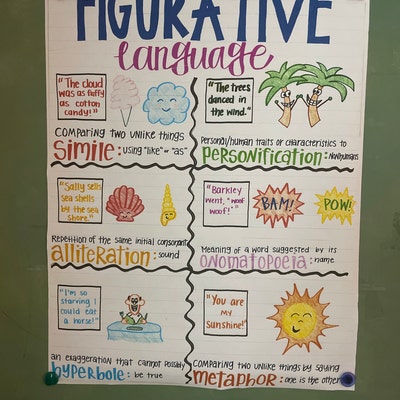 FIGURATIVE
language
"The cloud
was as fluffy
as cotton
candy!"
Comparing two unlike things
Simile: using "like" or "as"
"The trees
danced in
the wind."
Personal/human traits or characteristics to
Personification: Nonhumans
"Sally sells
sea shells
by the sea
shore."
Repetition of the same initial consonant
alliteration: sound
"Barkley
went, "woof
woof!"
BAM!
POW!
Meaning of a word suggested by its
onomatopoeia: name
"I'm so
starving I
could eat
a horse!"
an exaggeration that cannot possibly
hyperbole: be true
"You are
my
sunshine!"
Comparing two unlike things by saying
metaphor: one is the other